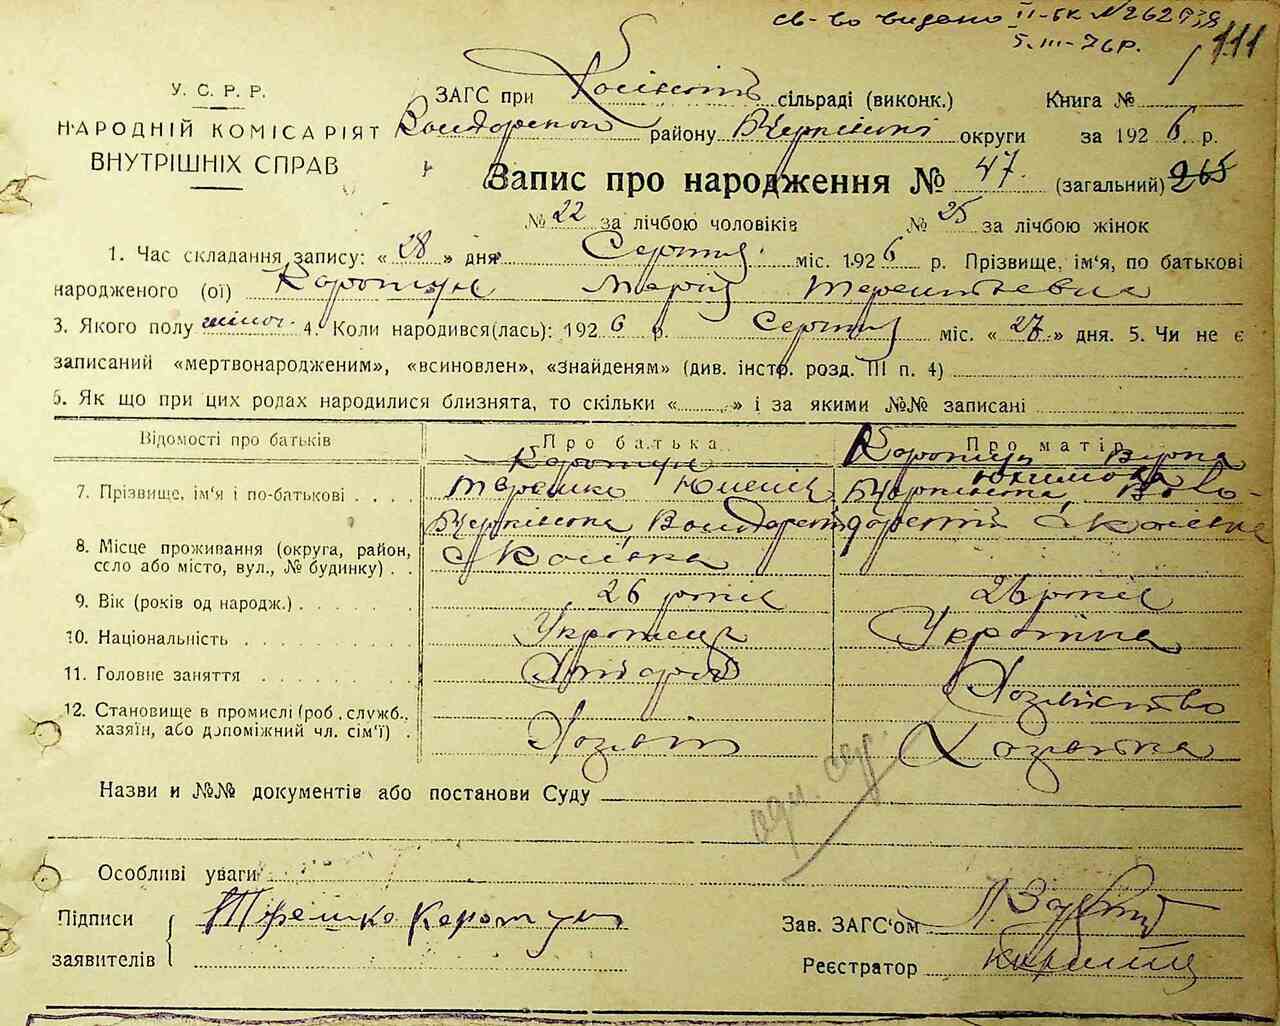 св-во видано ІІ-БК № 262938
5.ІІІ-76р.
111
У. С. Р. Р.
НАРОДНІЙ КОМІСАРІЯТ
ВНУТРІШНІХ СПРАВ
ЗАГС при сільраді (виконк.) Книга №
району округи за 1926 р.
Запис про народження № 47. (загальний) 265
№ 22 за лічбою чоловіків № 25 за лічбою жінок
1. Час складання запису: «28» дня Серпня міс. 1926 р. Прізвище, ім'я, по батькові
народженого (ої) Коротун Марія Терентьевна
3. Якого полу жіноч. 4. Коли народився(лась): 1926 р. Серпня міс. «27» дня. 5. Чи не є
записаний «мертвонародженим», «всиновлен», «знайденям» (див. інстр. розд. III п. 4)
6. Як що при цих родах народилися близнята, то скільки « » і за якими №№ записані
Відомості про батьків Про батька Про матір
Коротун Коротун
7. Прізвище, ім'я і по-батькові
8. Місце проживання (округа, район,
село або місто, вул., № будинку)
9. Вік (років од народж.) 26 років 26 років
10. Національність Українець Українка
11. Головне заняття Хлібороб Хозяйство
12. Становище в промислі (роб., служб.,
хазяїн, або допоміжний чл. сім'ї) Хозяїн Хозяйка
Назви и №№ документів або постанови Суду
Особливі уваги
Підписи Терешко Коротун Зав. ЗАГС'ом
заявителів Реєстратор